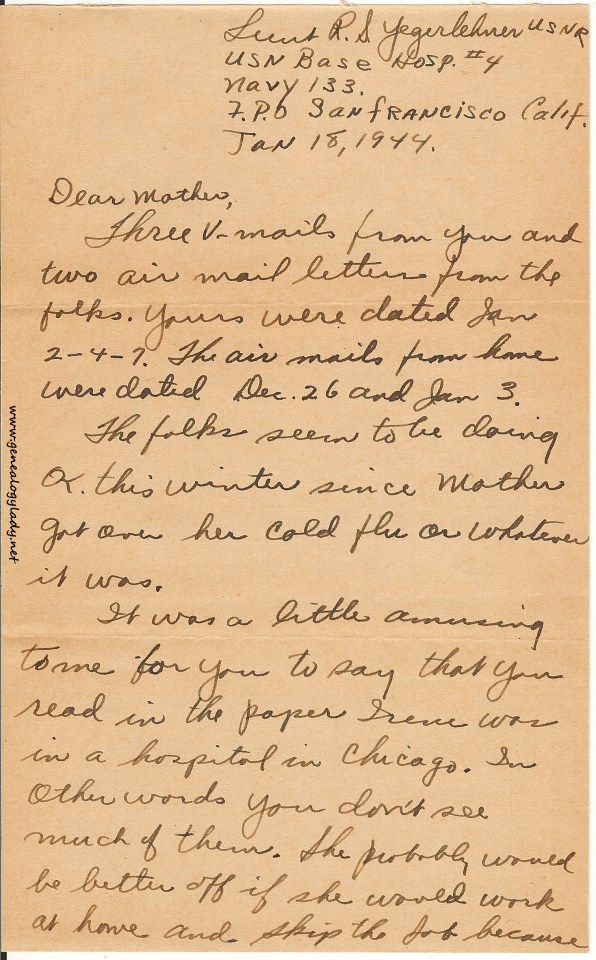 Lieut R. S. Yegerlehner USNR
USN Base Hosp. #4
Navy 133.
F.P.O San Francisco Calif.
Jan 18, 1944.
Dear Mother,
Three V-mails from you and
two air mail letters from the
folks. Yours were dated Jan
2-4-7. The air mails from home
were dated Dec. 26 and Jan 3.
The folks seem to be doing
OK. this winter since Mother
got over her cold flu or whatever
it was.
It was a little amusing
to me for you to say that you
read in the paper Irene was
in a hospital in Chicago. In
other words you don't see
much of them. She probably would
be better off if she would work
at home and skip the job because
www.genealogylady.net